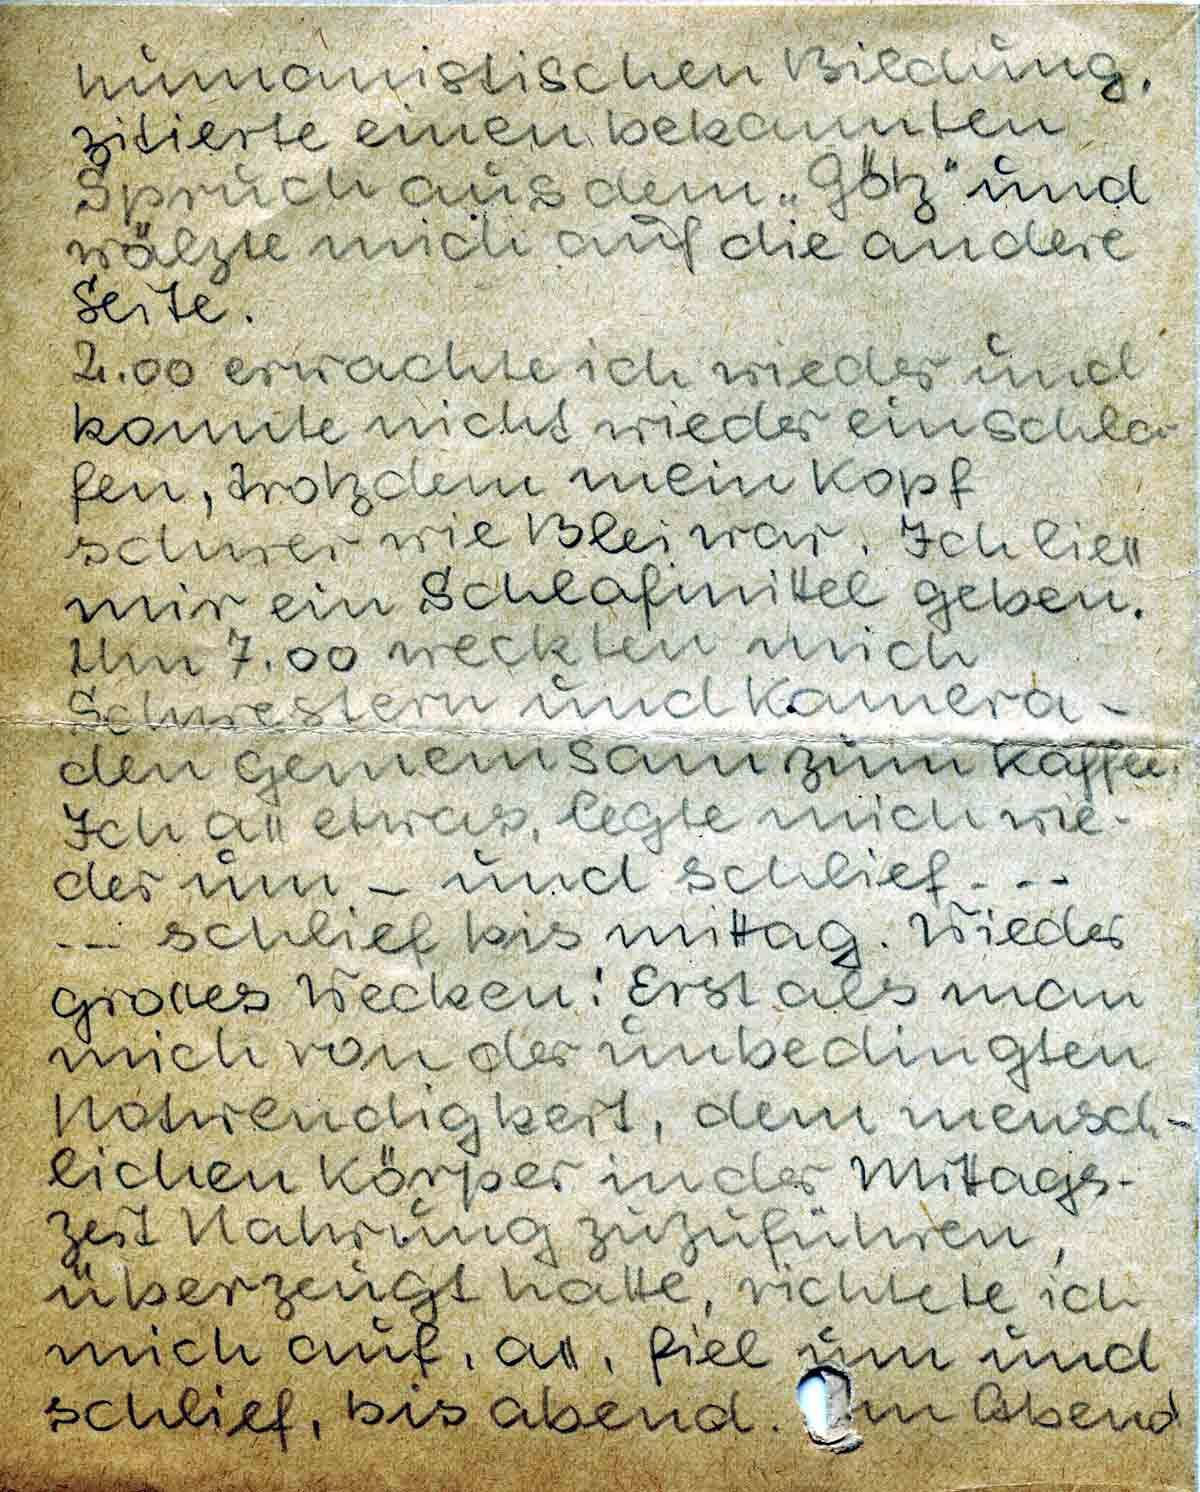 humanistischen Bildung,
zitierte einen bekannten
Spruch aus dem „Götz“ und
wälzte mich auf die andere
Seite.
2.00 erwachte ich wieder und
konnte nicht wieder einschla-
fen, trotzdem mein Kopf
schwer wie Blei war. Ich ließ
mir ein Schlafmittel geben.
Um 7.00 weckten mich
Schwestern und Kamera-
den gemeinsam zum Kaffee.
Ich aß etwas, legte mich wie-
der um – und schlief - --
--- schlief bis mittag. Wieder
großes Wecken! Erst als man
mich von der unbedingten
Notwendigkeit, dem mensch-
lichen Körper in der Mittags-
zeit Nahrung zuzuführen,
überzeugt hatte, richtete ich
mich auf, aß, fiel um und
schlief, bis abend. Am Abend